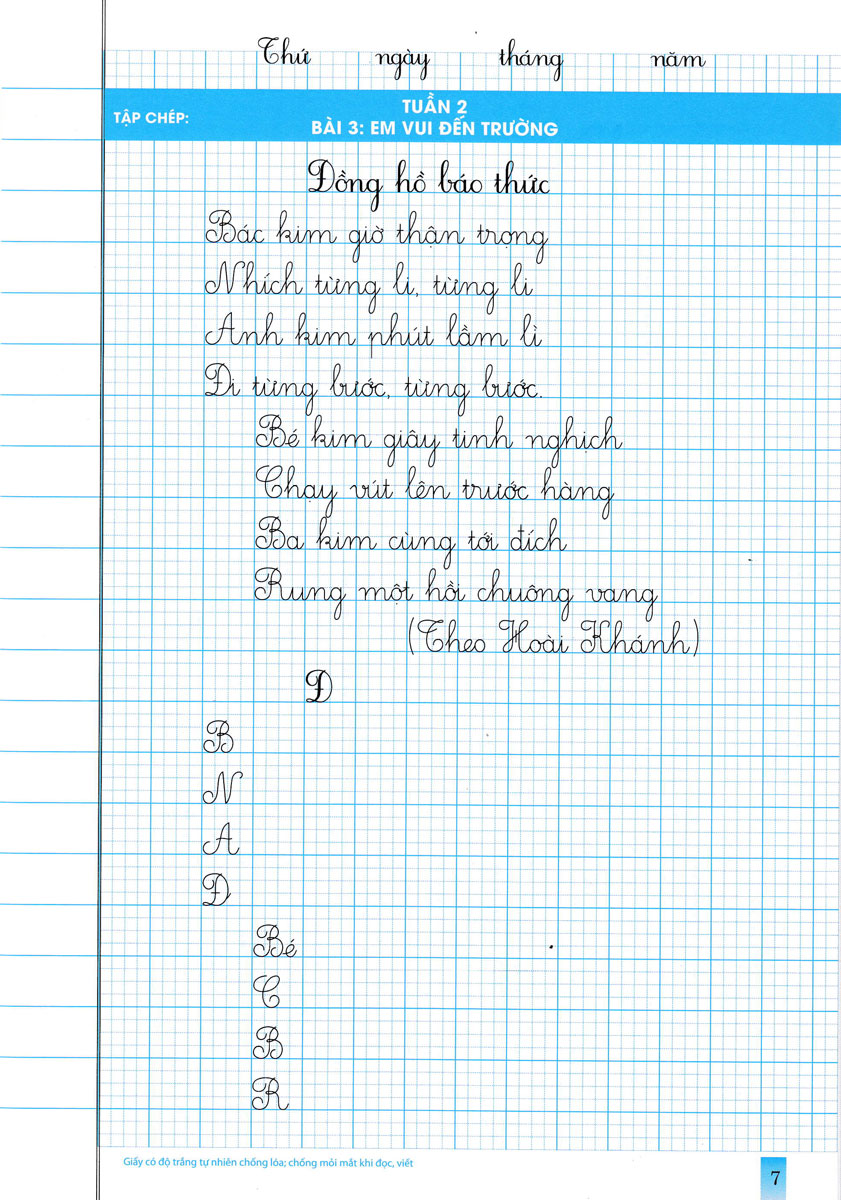 Thứ ngày tháng năm
TẬP CHÉP:
TUẦN 2
BÀI 3: EM VUI ĐẾN TRƯỜNG
Đồng hồ báo thức
Bác kim giờ thận trọng
Nhích từng li, từng li
Anh kim phút lầm lì
Đi từng bước, từng bước.
Bé kim giây tinh nghịch
Chạy vút lên trước hàng
Ba kim cùng tới đích
Rung một hồi chuông vang
(Theo Hoài Khánh)
Đ
B
N
A
Đ
Bé
C
B
R
Giấy có độ trắng tự nhiên chống lóa; chống mỏi mắt khi đọc, viết
7